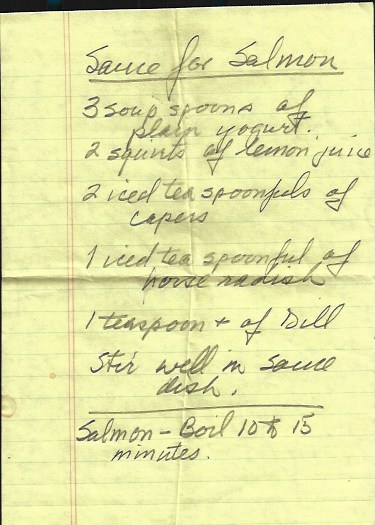 Sauce for Salmon
3 soup spoons of
plain yogurt.
2 squirts of lemon juice
2 iced tea spoonfuls of
capers
1 iced tea spoonful of
horse radish
1 teaspoon + of Dill
Stir well in sauce
dish.
Salmon - Boil 10 to 15
minutes.